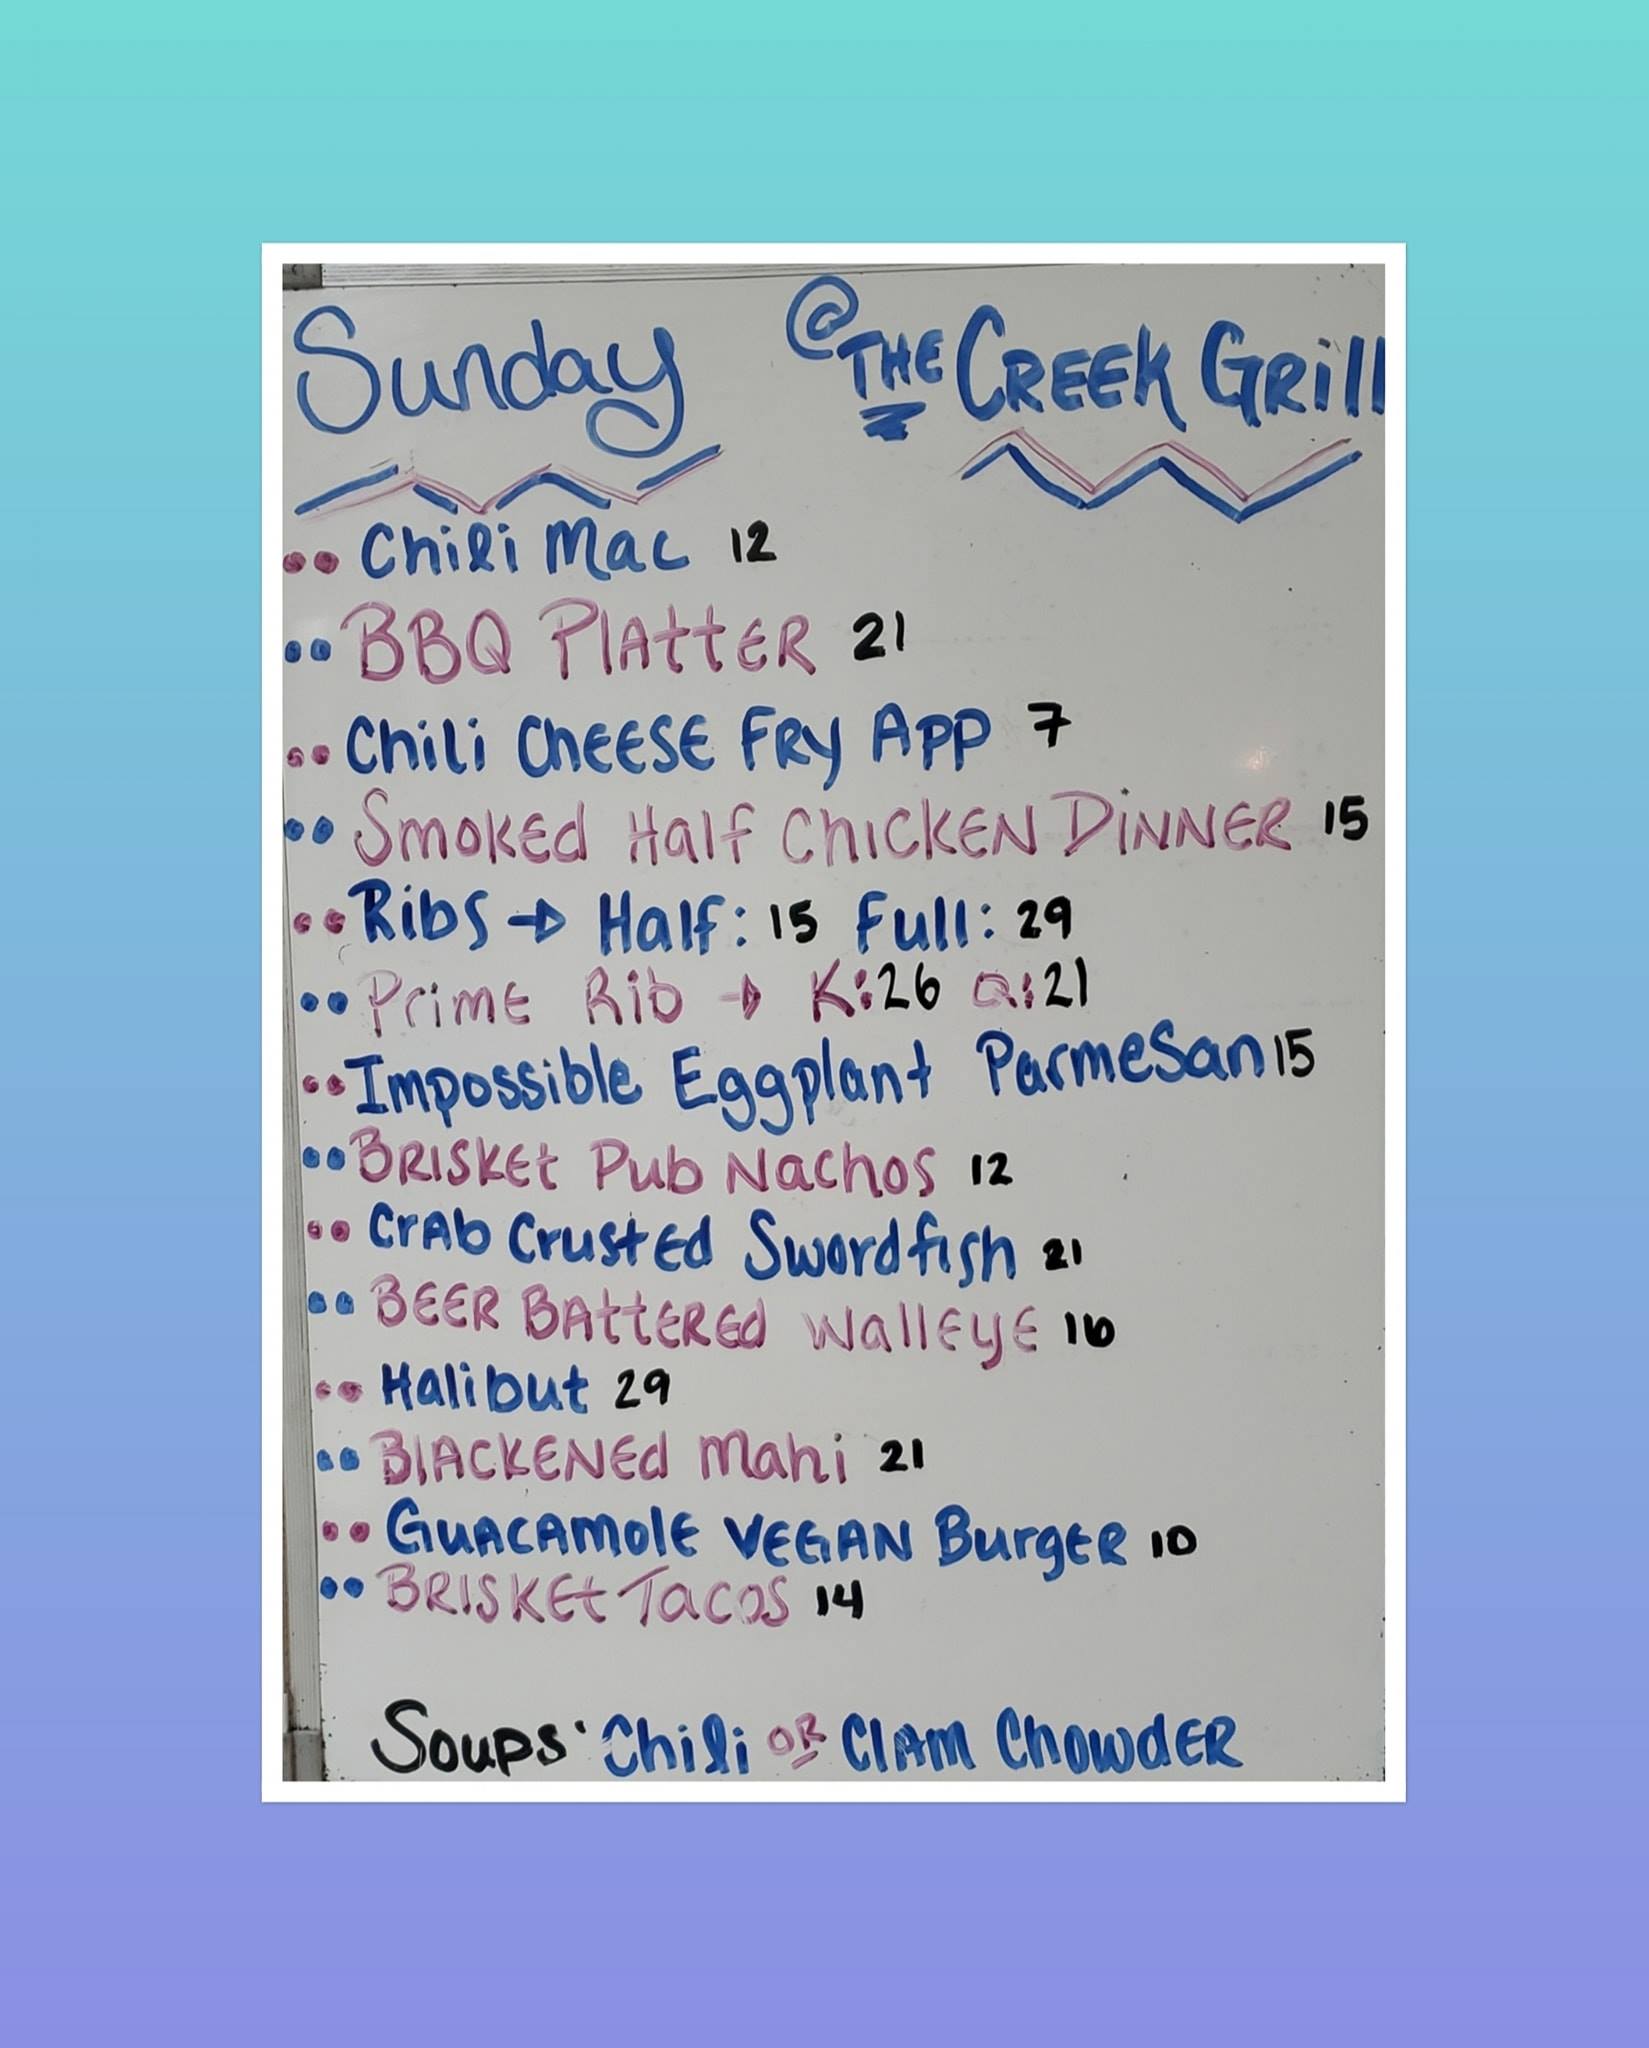 Sunday @ THE CREEK GRill
Chili Mac 12
BBQ PlAttER 21
Chili ChEESE FRy APP 7
SmokEd Half ChickEN DiNNER 15
Ribs → Half: 15 Full: 29
PrimE Rib → K:26 Q:21
Impossible Eggplant ParmeSan 15
BRISKEt Pub Nachos 12
CrAb CrustEd Swordfish 21
BEER BAttEREd WallEyE 16
Halibut 29
BlACKENEd Mahi 21
GuACAmolE VEGAN BurgER 10
BRISKEt Tacos 14
Soups: Chili OR ClAm ChowdER